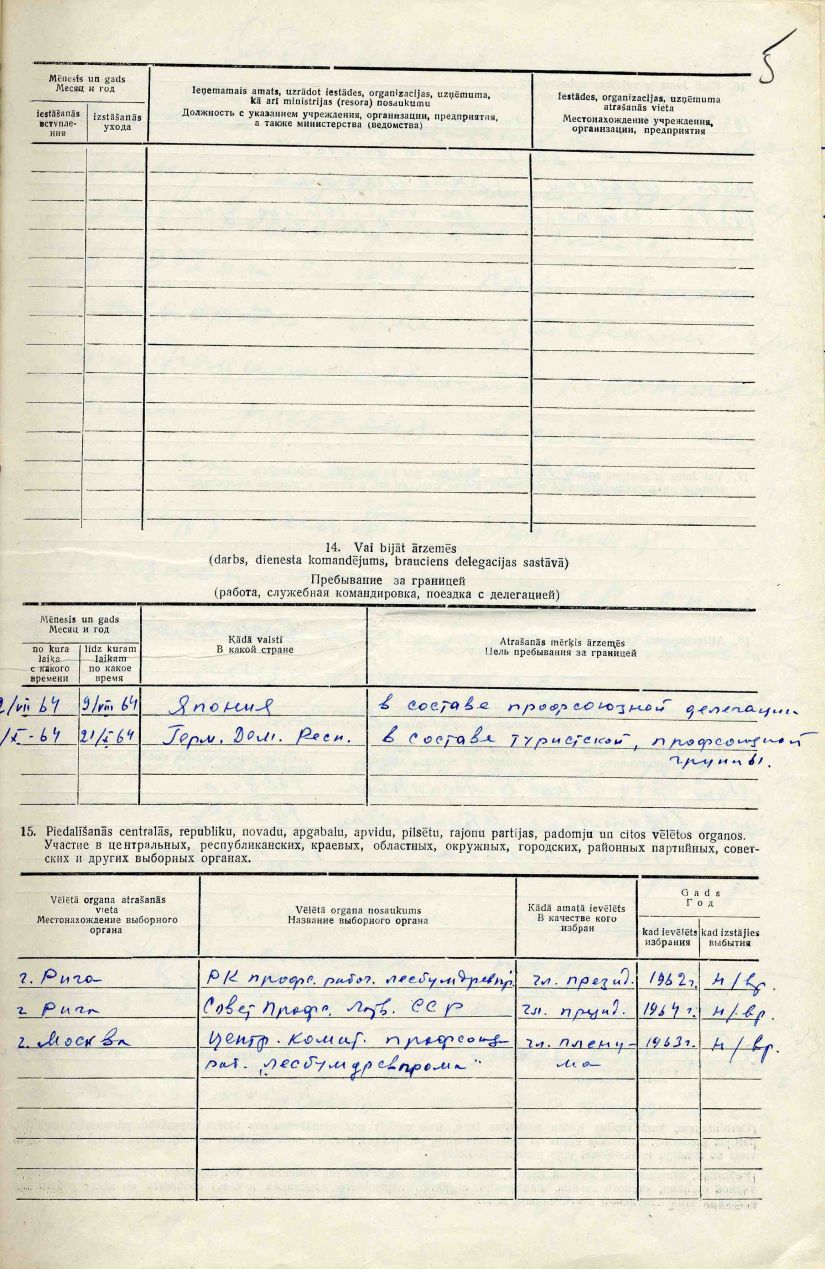 5
Mēnesis un gads
Месяц и год
iestāšanās
вступле-
ния
izstāšanās
ухода
Ieņemamais amats, uzrādot iestādes, organizācijas, uzņēmuma,
kā arī ministrijas (resora) nosaukumu
Должность с указанием учреждения, организации, предприятия,
а также министерства (ведомства)
Iestādes, organizācijas, uzņēmuma
atrašanās vieta
Местонахождение учреждения,
организации, предприятия
14. Vai bijāt ārzemēs
(darbs, dienesta komandējums, brauciens delegācijas sastāvā)
Пребывание за границей
(работа, служебная командировка, поездка с делегацией)
Mēnesis un gads
Месяц и год
no kura
laika
с какого
времени
līdz kuram
laikam
по какое
время
Kādā valstī
В какой стране
Atrašanās mērķis ārzemēs
Цель пребывания за границей
/VII 64 9/VIII 64 Япония в составе профсоюзной делегации
/X-64 21/X 64 Герм. Дем. Респ. в составе туристской, профсоюзной
группы.
15. Piedalīšanās centrālās, republiku, novadu, apgabalu, apvidu, pilsētu, rajonu partijas, padomju un citos vēlētos organos.
Участие в центральных, республиканских, краевых, областных, окружных, городских, районных партийных, совет-
ских и других выборных органах.
Vēlētā organa atrašanās
vieta
Местонахождение выборного
органа
Vēlētā organa nosaukums
Название выборного органа
Kādā amatā ievēlēts
В качестве кого
избран
Gads
Год
kad ievēlēts
избрания
kad izstājies
выбытия
г. Рига РК профс. работ. лесбумдревпр. чл. презид. 1962 г. н/вр.
г. Рига Совет Профс. Латв. ССР чл. презид. 1964 г. н/вр.
г. Москва Центр. комит. профсоюз. чл. плену- 1963 г. н/вр.
раб. „лесбумдревпрома" ма